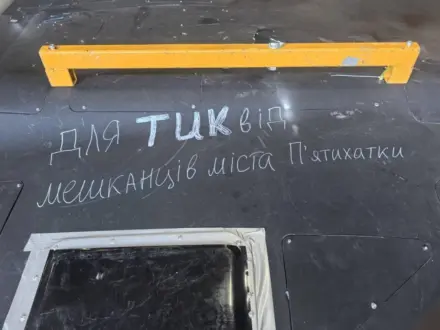 Для ТЦК від
мешканців міста П'ятихатки